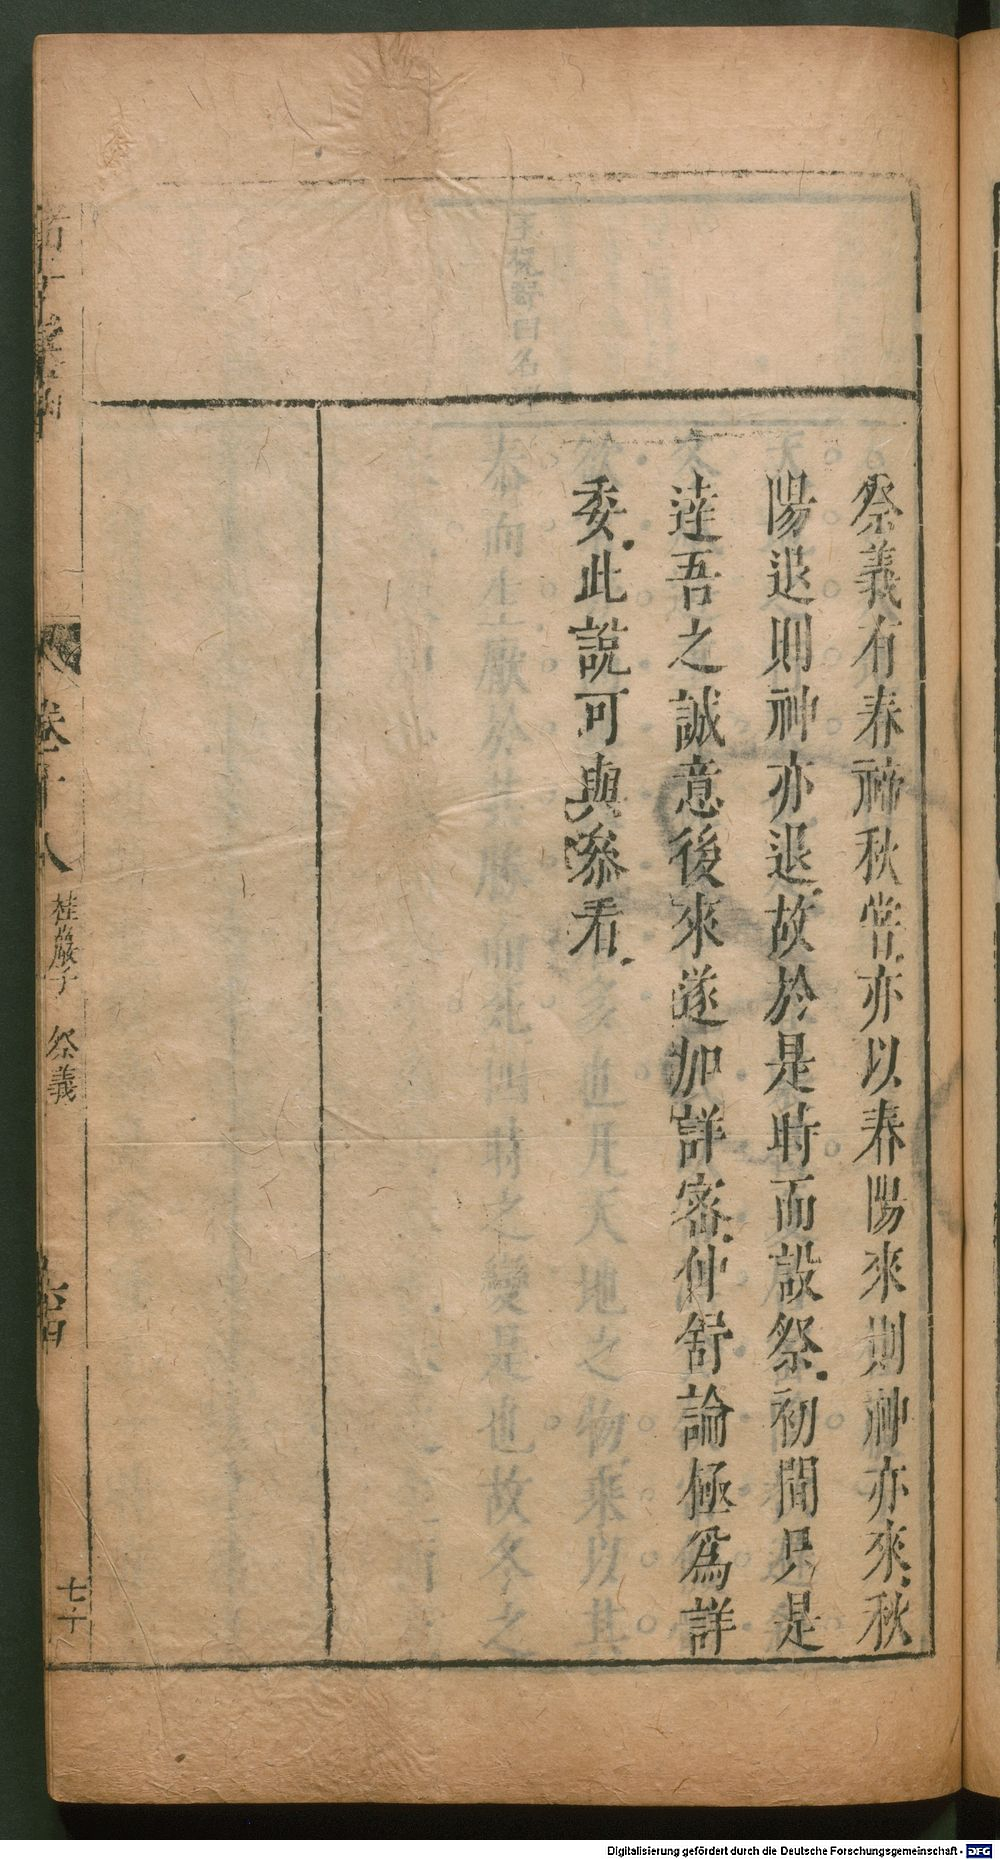 祭義有春禘秋嘗亦以春陽來則神亦來秋
陽退則神亦退故於是時而設祭初間只是
達吾之誠意後來遂加詳審仲舒論極為詳
委此說可與叅看
卷十八
桂巖子 祭義
七十
Digitalisierung gefördert durch die Deutsche Forschungsgemeinschaft - DFG